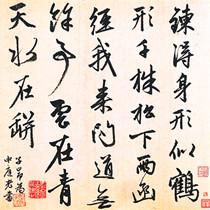 練得身形似鶴
形千株松下兩函
經我來問道無
餘事雲在青
天水在缾
子昂為
中庭老書